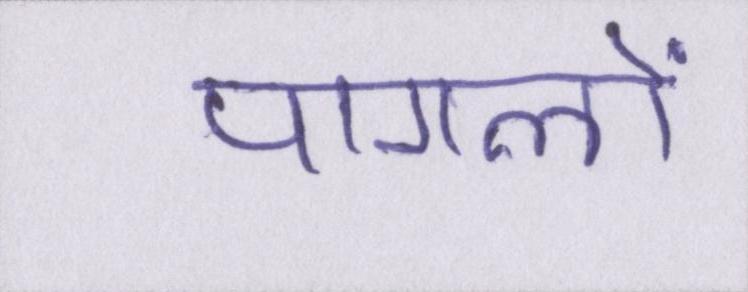 पागलों